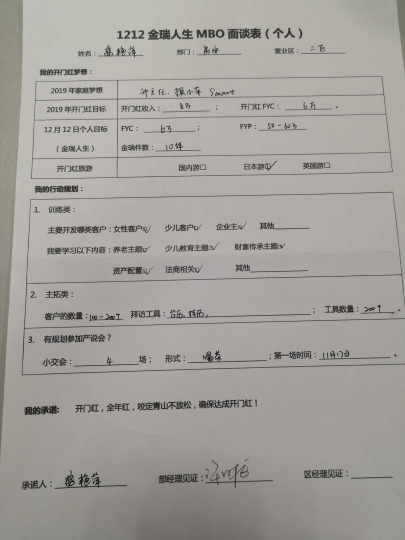 1212金瑞人生MBO面谈表（个人）
姓名： 艳萍 部门： 营业区：二区
我的开门红梦想：
2019年家庭梦想 升主任、换小车 Smart
2019年开门红目标 开门红收入：8万； 开门红FYC：6万。
12月12日个人目标 FYC：6万； FYP：50-60万
（金瑞人生） 金瑞件数：10件
开门红旅游 国内游□ 日本游☑ 英国游□
我的行动规划：
1. 训练类：
主要开发哪类客户：女性客户☑ 少儿客户☑ 企业主☑ 其他
我要学习以下内容：养老主题☑ 少儿教育主题☑ 财富传承主题☑
资产配置☑ 法商相关☑ 其他
2. 主拓类：
客户的数量：100-200个 拜访工具：台历、 ； 工具数量：200个。
3. 有规划参加产说会？
小交会：4场； 形式： ；第一场时间：11月17日。
我的承诺： 开门红，全年红，咬定青山不放松，确保达成开门红！
承诺人： 艳萍 部经理见证： 区经理见证：